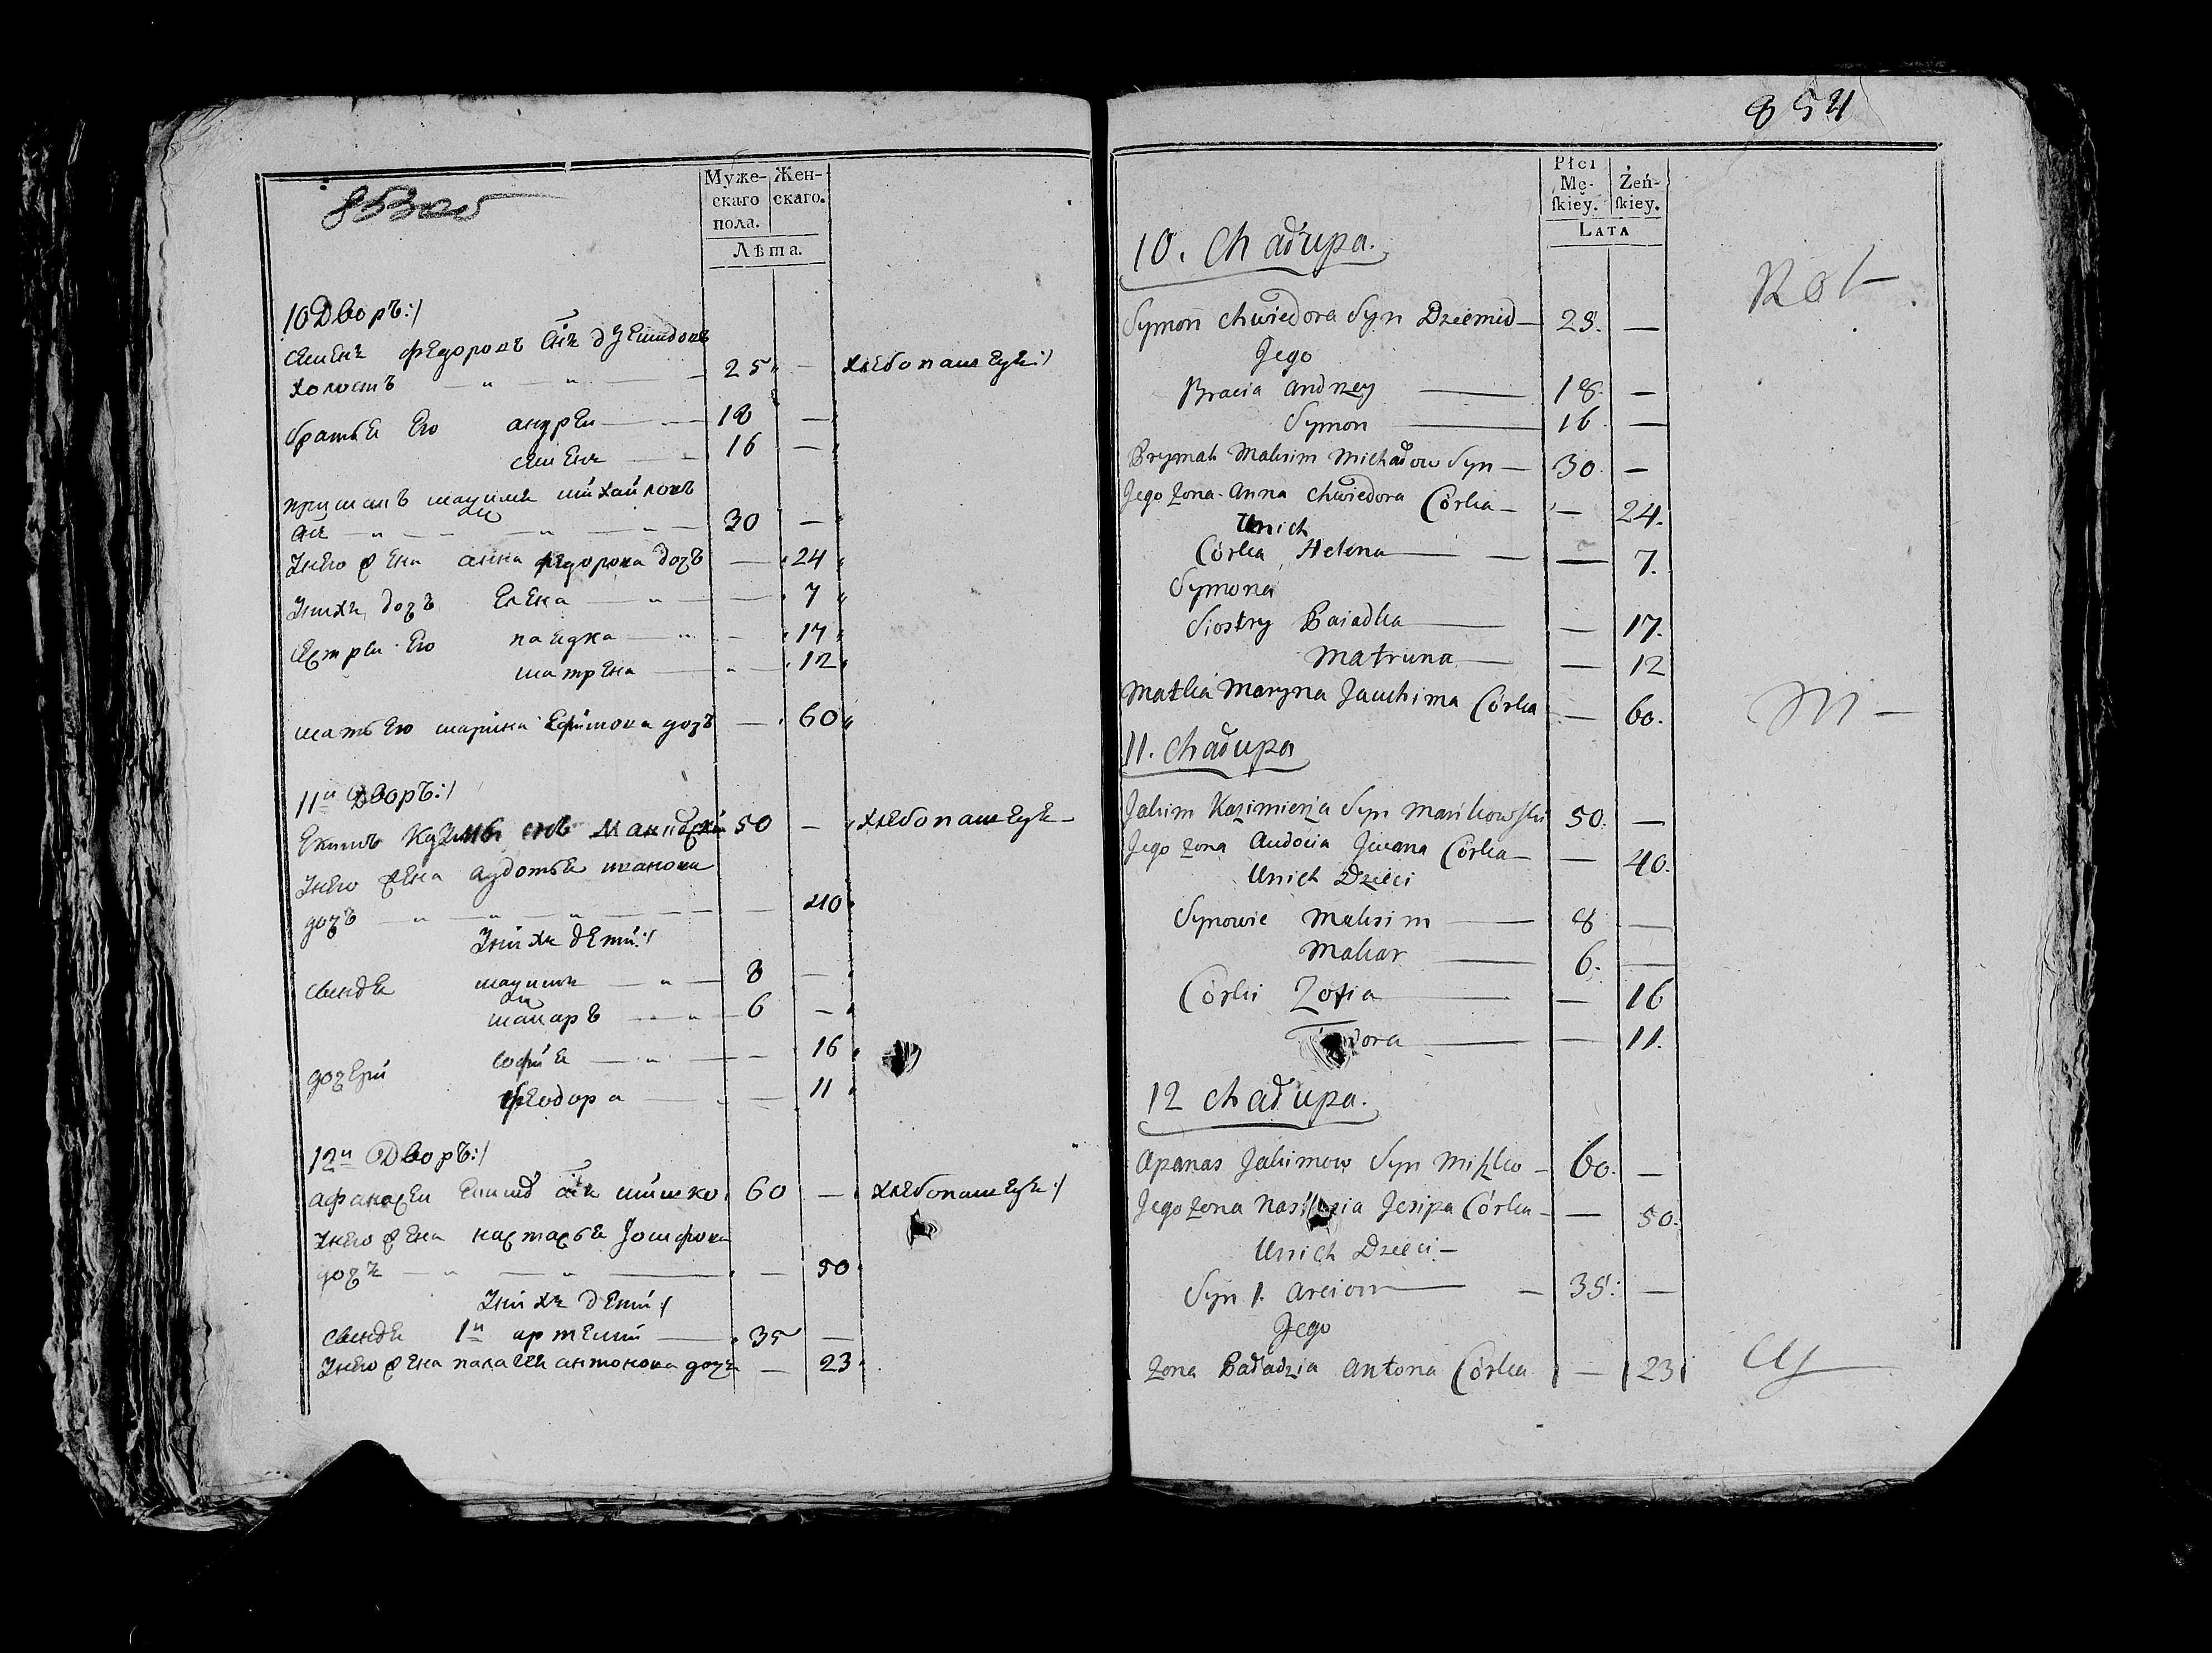 853об
Муже-
скаго
пола.
Жен-
скаго.
Лѣта.
10 Дворъ:/
Семенъ Федоровъ снъ Дземидовъ
холостъ 25 — хлебопашецъ:/
братья Его андрей 18 —
Семенъ 16 —
приманъ Максимъ Михайловъ
снъ 30 —
Унего жена анна федорова дочъ — 24
Унихъ дочъ Елена — 7
сестры Его 17
матрена — 12
мать Его марина Ефимова дочъ — 60
11й Дворъ:/
Екимъ 50 — хлебопашецъ
Унего жена авдотья иванова
дочъ — 40
Унихъ дети:/
максимъ 8 —
макаръ 6 —
дочери софия — 16
феодора — 11
12й Дворъ:/
афанасей Екимовъ снъ мишко 60 — хлебопашецъ:/
Унего жена настасья Иосифова
дочъ — 50
Унихъ дети:/
1й артемий 35 —
Унего жена палагея антонова дочъ — 23
854
Płci
Mę-
ſkiey.
Żeń-
ſkiey.
LATA
10. Chałupa.
Symon Chwiedora Syn Dziemid — 25. —
Jego
Bracia Andrzey — 18. —
Symon — 16. —
Prymak Maksim Michałow Syn — 30. —
Jego żona Anna Chwiedora Córka — — 24.
Unich
Córka Helena — — 7.
Symona
Siostry — — 17.
Matruna — — 12
Matka Maryna Jauchima Córka — 60.
11. Chałupa
Jakim Kazimierza Syn Mańkowski 50. —
Jego żona Audocia Jwana Córka — — 40.
Unich Dzieci
Synowie Maksim — 8 —
Makar — 6. —
Córki Zofia — — 16
— — 11.
12 Chałupa.
Apanas Jakimow Syn Miszko — 60. —
Jego żona Jesipa Córka — — 50.
Unich Dzieci —
Syn 1. Arciom — 35. —
Jego
żona Paładzia Antona Córka — 23